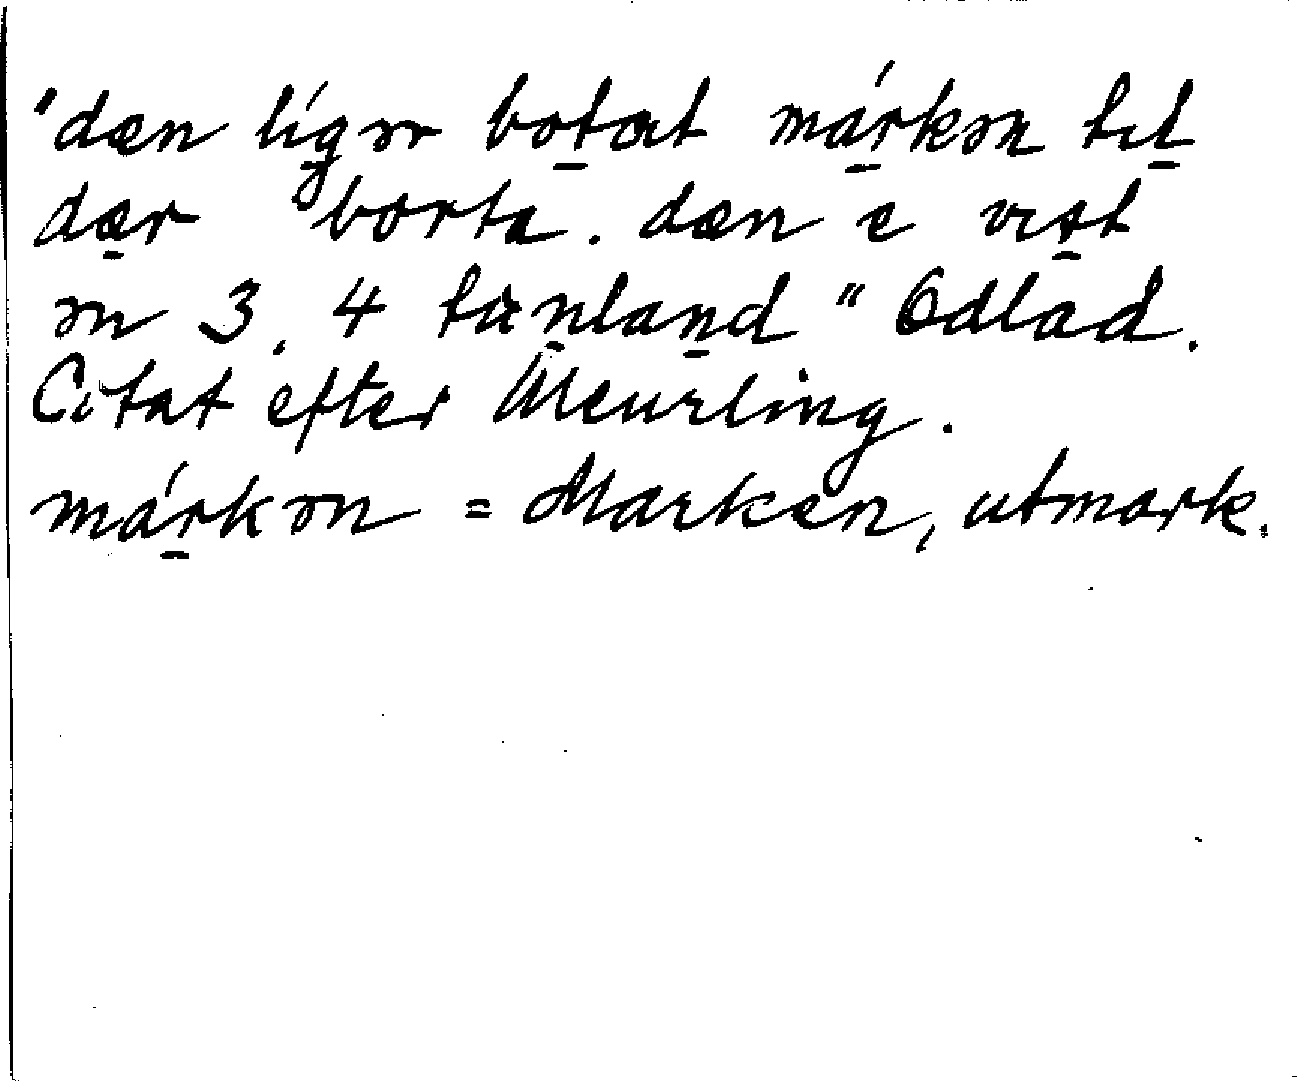 "dæn lígər botət márkən tıl
dær borta. dæn e vıst
ən 3, 4 tænland" Odlad.
Citat efter Meurling.
márkən = Marken, utmark.